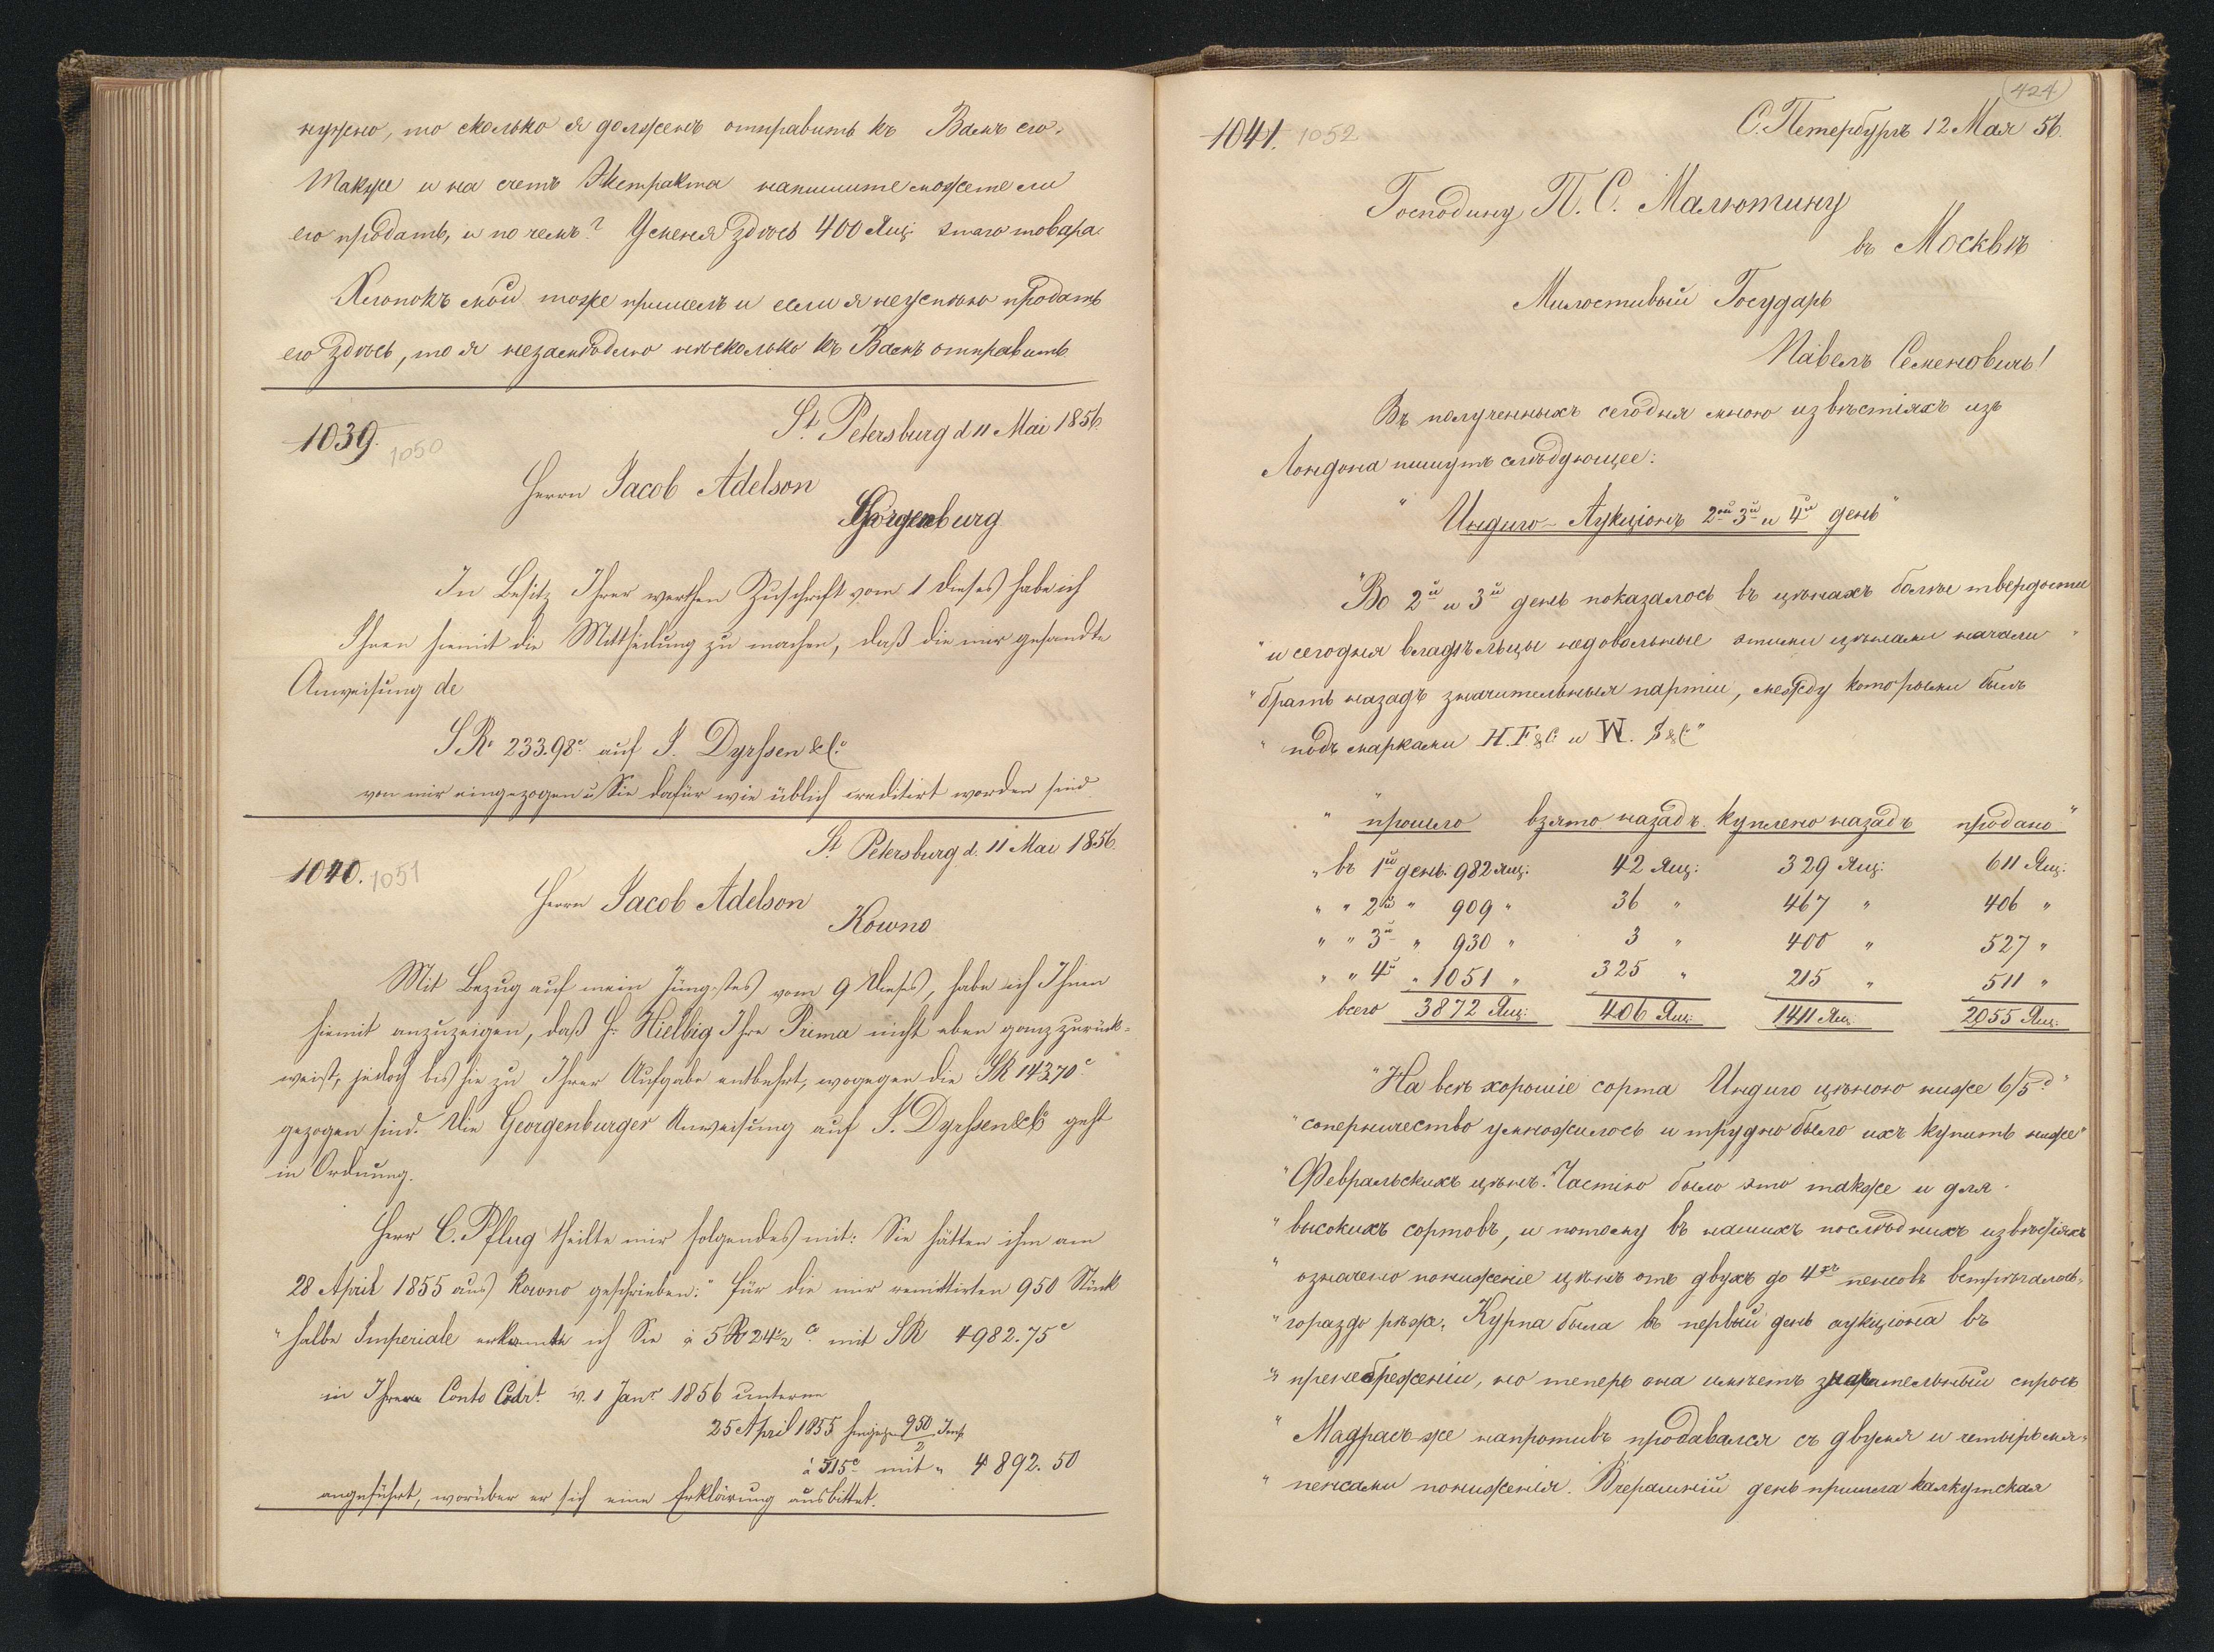 нужно, то сколько я долженъ отправить къ Вамъ его.
Также и на счетъ Экстракта напишите можете ли
его продать, и по чемъ? У меня здѣсь 400 Ящ: этаго товара.
Хлопокъ мой тоже пришелъ и если я неуспѣю продать
его здѣсь, то я незамѣдлю нѣсколько къ Вамъ отправить.
1039. 1050
St. Petersburg d 11 Mai 1856.
Herrn Jacob Adelson
Georgenburg
In Besitz Ihrer werthen Zuschrift vom 1 dieses habe ich
Ihnen hiemit die Mittheilung zu machen, daß die mir gesandte
Anweisung de
SRo 233.98c. auf J. Dyrssen & Co
von mir eingezogen u Sie dafür wie üblich creditirt worden sind.
St Petersburg d. 11 Mai 1856.
1040. 1051
Herrn Jacob Adelson
Kowno
Mit Bezug auf mein Jüngstes vom 9 dieses, habe ich Ihnen
hiemit anzuzeigen, daß Hr Hielbig Ihre Prima nicht eben ganz zurück-
weist, jedoch bis hie zu Ihrer Aufgabe entbehrt, wogegen die SR 143.70c
gezogen sind. Die Georgenburger Anweisung auf J. Dyrssen & Co geht
in Ordnung.
Herr C. Pflug theilte mir folgendes mit: Sie hätten ihm am
28 April 1855 aus Kowno geschrieben: "für die mir remittirten 950 Stück
"halbe Imperiale erkannte ich Sie à 5 Ro 24½ c. mit SR 4982.75c
in Ihrem Conto Cort. v. 1 Janr 1856 unterm
25 April 1855 hingegen 950/2 Imp.
à 515c mit " 4892.50
angeführt, worüber er sich eine Erklärung ausbittet.
424
1041. 1052
С. Петербургъ 12 Мая 56.
Господину П. С. Малютину
въ Москвѣ
Милостивый Государь
Павелъ Семеновичъ!
Въ полученныхъ сегодня мною извѣстіяхъ изъ
Лондона пишутъ слѣдующее:
"Индиго-Аукціонъ 2ой 3й и 4й день"
"Во 2й и 3й день показалось въ цѣнахъ болѣе твердости
"и сегодня владѣльцы недовольные этими цѣнами начали "
"брать назадъ значительныя партіи, между которыми былъ
"подъ марками H.F.&C и W. S&C"
" прошло взято назадъ куплено назадъ продано"
" въ 1й день. 982 Ящ: 42 Ящ: 329 Ящ: 611 Ящ:
" " 2й " 909 " 36 " 467 " 406 "
" " 3й " 930 " 3 " 400 " 527 "
" " 4й " 1051 " 325 " 215 " 511 "
всего 3872 Ящ: 406 Ящ: 1411 Ящ: 2055 Ящ:
"На всѣ хорошіе сорта Индиго цѣною ниже 6/5d"
"соперничество умножилось и трудно было ихъ купить ниже"
"Февральскихъ цѣнъ. Частію было это также и для
"высокихъ сортовъ, и потому въ нашихъ послѣднихъ извѣстіяхъ
"означено пониженіе цѣнъ отъ двухъ до 4хъ пенсовъ встрѣчалось
"гораздо рѣже. Курпа была въ первый день аукціона въ
"пренебреженіи, но теперь она имѣетъ значительный спросъ
"Мадрасъ-же напротивъ продавался съ двумя и четырьмя
"пенсами пониженія. Вчерашній день пришла калкутская